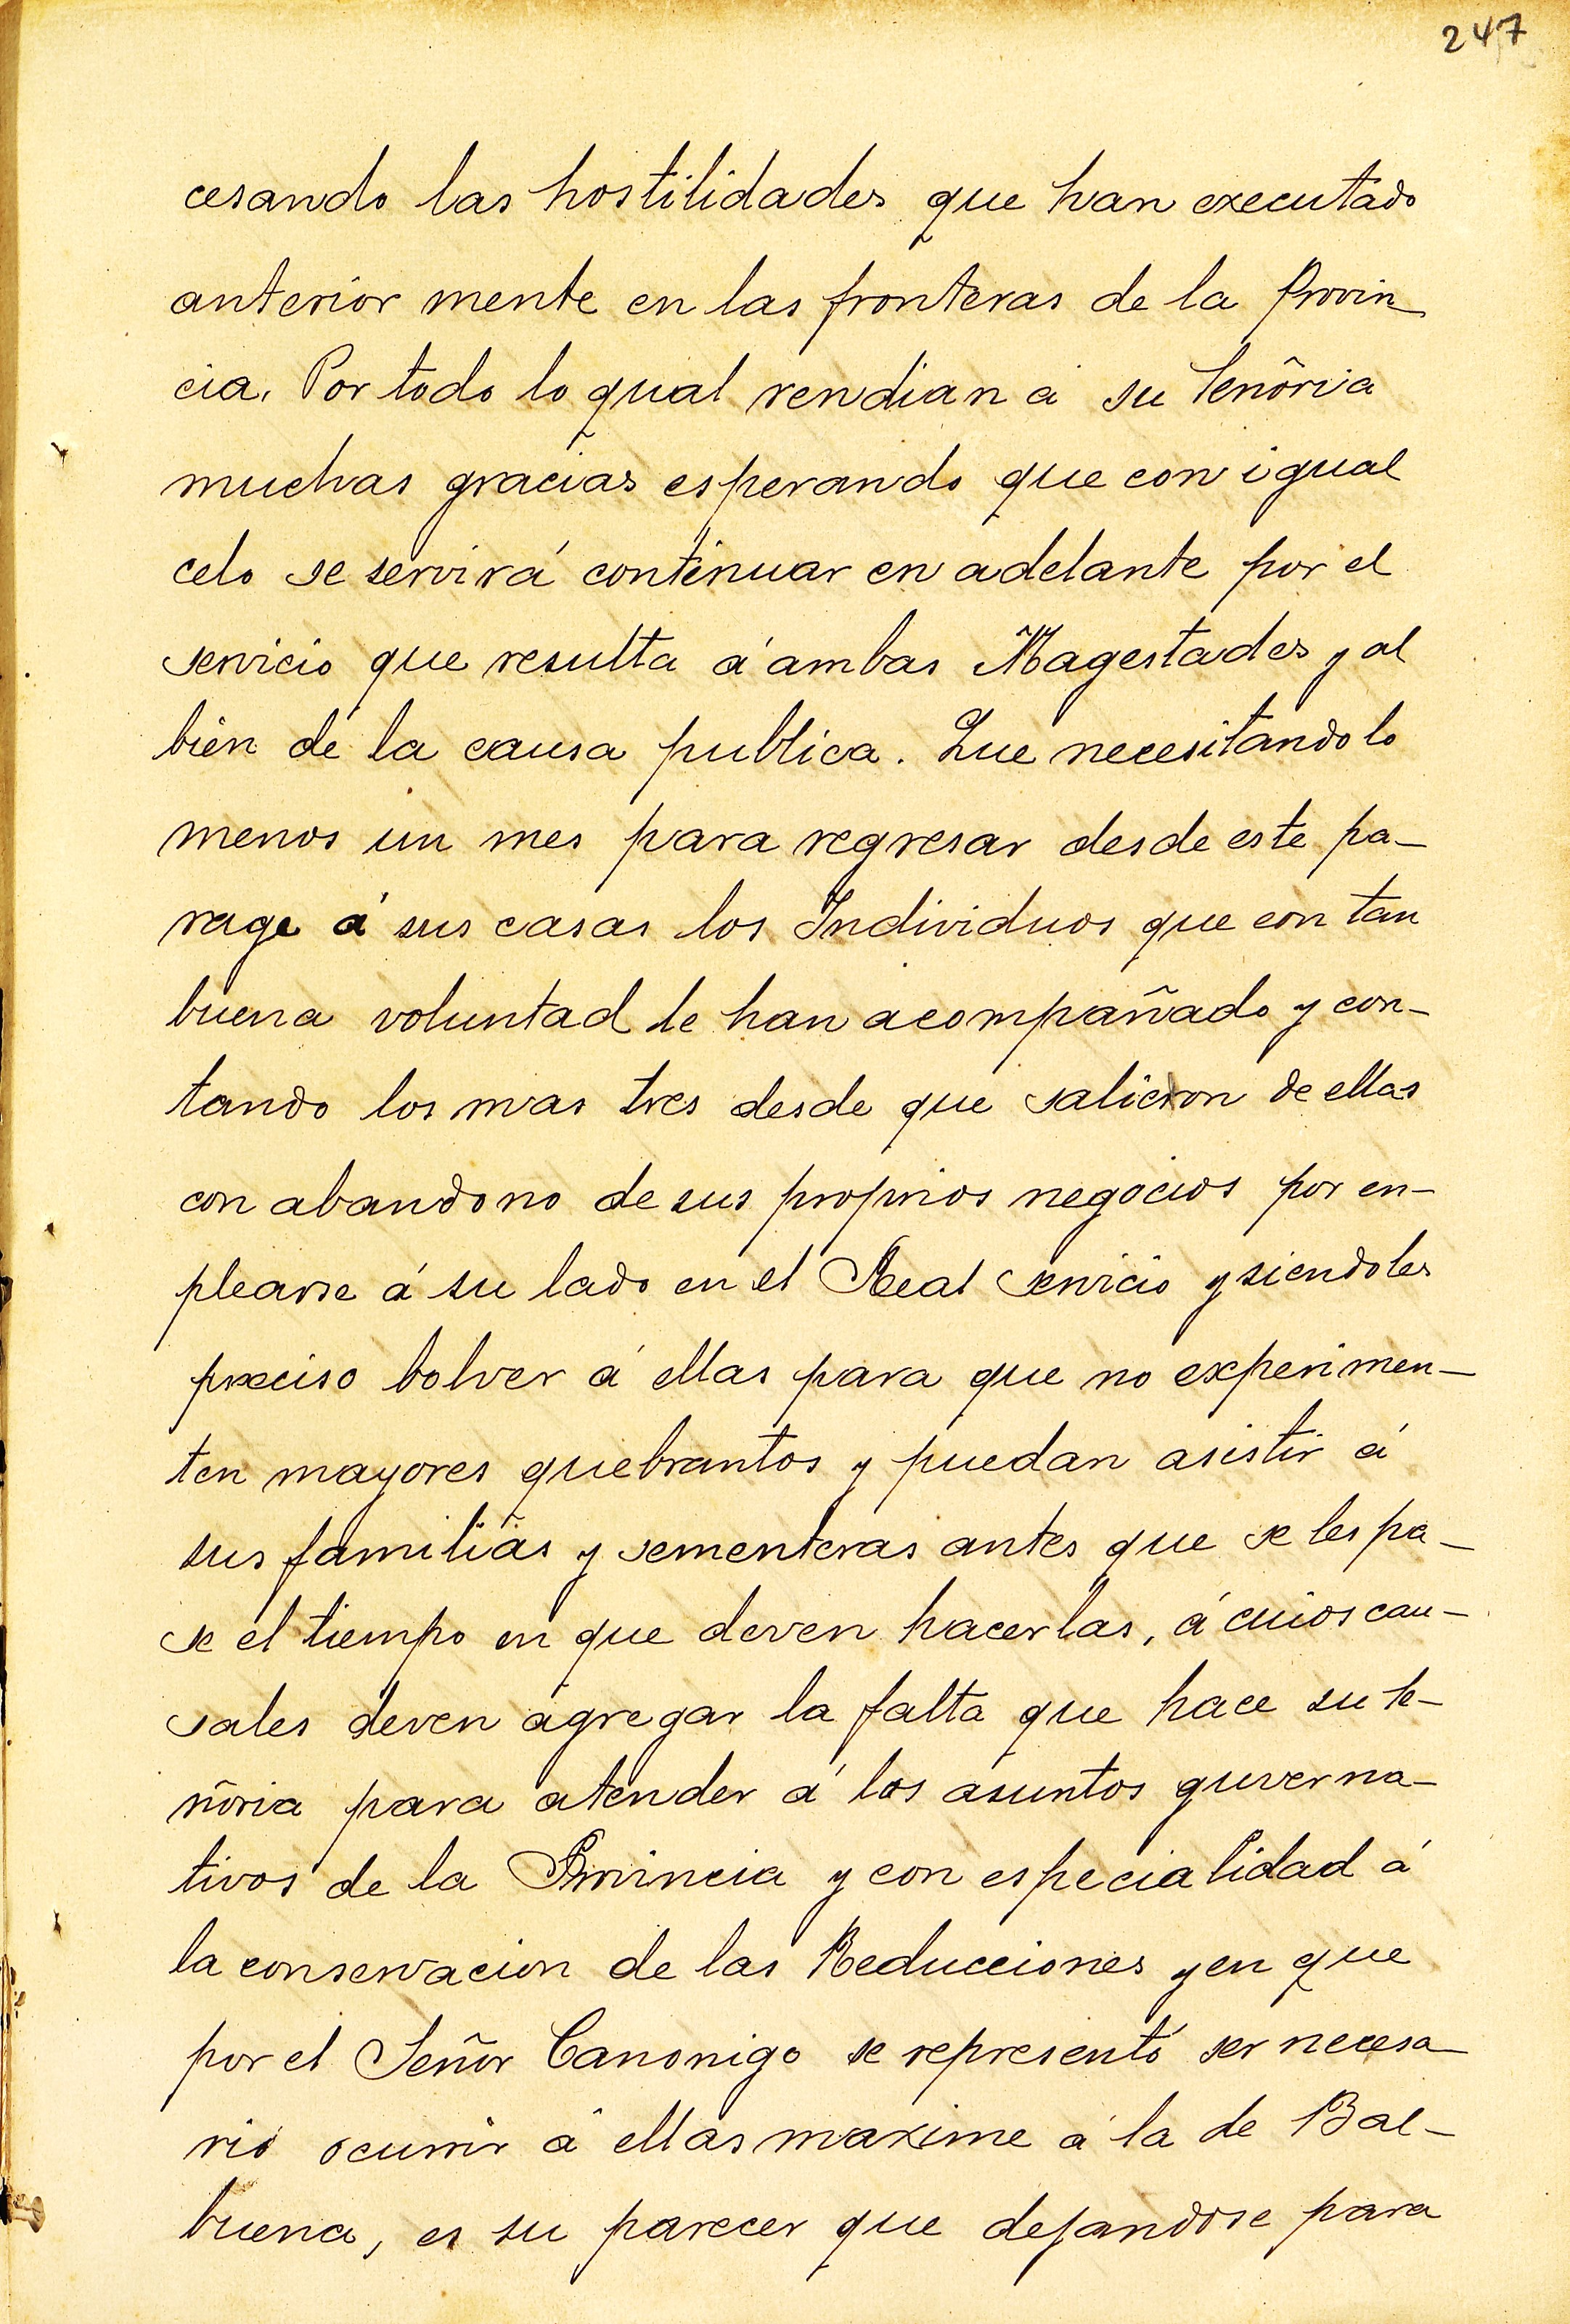 247
cesando las hostilidades que han executado
anterior mente en las fronteras de la Provin
cia. Por todo lo qual rendian á su Señoria
muchas gracias esperando que con igual
celo se servirá continuar en adelante por el
servicio que resulta á ambas Magestades y al
bien de la causa publica. Que necesitando lo
menos un mes para regresar desde este pa-
rage á sus casas los Individuos que con tan
buena voluntad le han acompañado y con-
tando los mas tres desde que salieron de ellas
con abandono de sus proprios negocios por en-
plearse á su lado en el Real servicio y siendoles
preciso bolver á ellas para que no experimen-
ten mayores quebrantos y puedan asistir á
sus familias y sementeras antes que se les pa-
se el tiempo en que deven hacerlas, á cuios cau-
sales deven agregar la falta que hace su Se-
ñoria para atender á los asuntos guverna-
tivos de la Provincia y con especialidad á
la conservacion de las Reducciones y en que
por el Señor Canonigo se representó ser necesa-
rio ocurrir á ellas maxime á la de Bal-
buena, es su parecer que dejandose para